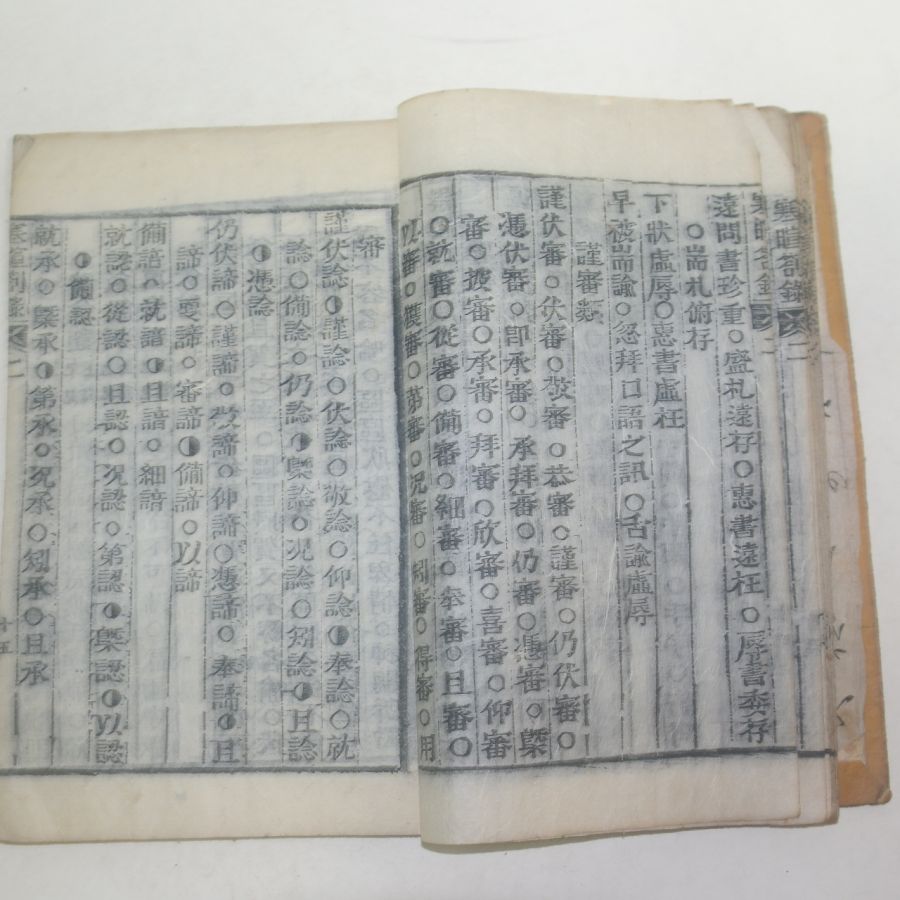 遠問書珍重○盛札遠存○惠書遠枉○辱書委存
○耑札俯存
下狀虛辱○惠書虛枉
早被耑諭○忽拜口語之訊○舌諭虛辱
謹審類
謹伏審○伏審○茇審○恭審○謹審○仍伏審○
憑伏審○卽承審○承拜審○仍審○憑審○槩
審○披審○承審○拜審○欣審○喜審○仰審
○就審○從審○備審○細審○奉審○且審○
以審○獲審○第審○况審○矧審○得審○用
審
謹伏諗◑謹諗○伏諗○敬諗○仰諗◑奉諗○就
諗○備諗○仍諗◑槩諗○况諗○矧諗◑且諗
◑憑諗
仍伏諦○謹諦○茇諦○仰諦○憑諦○奉諦◑且
諦○更諦○審諦◑備諦○以諦
備諳○就諳◑且諳○細諳
就認○從認○且認○况認○第認◑槩認◑以認
◑備認
就承○槩承◑第承○况承○矧承○且承
寒暄箚錄 二
十五